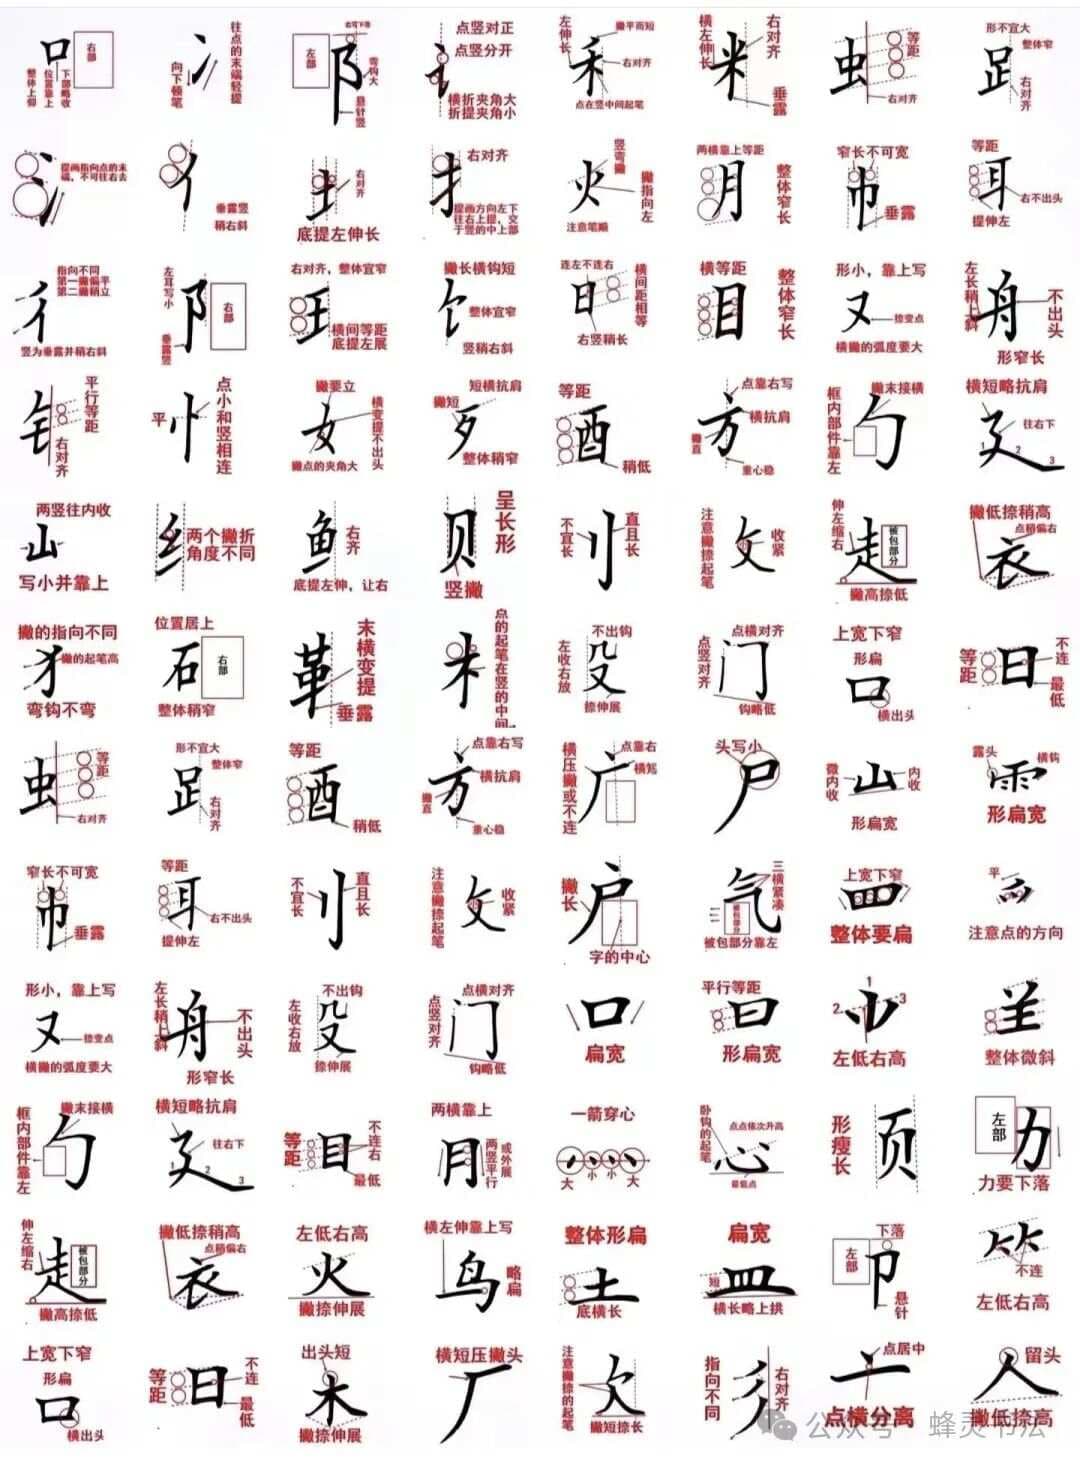 口 右部 整体上仰 位置靠上 下部略收
冫 往点的末端轻提 向下顿笔
阝 左部 右耳下落 弯钩大 悬针竖
讠 点竖对正 点竖分开 横折夹角大 折提夹角小
禾 左伸长 撇平而短 右对齐 点在竖中间起笔
米 横左伸长 右对齐 垂露
虫 等距 右对齐
𧾷 形不宜大 整体窄 右对齐
氵 提画指向点的末端,不可往右去
亻 垂露竖 稍右斜
土 右对齐 底提左伸长
扌 右对齐 提画方向左下往右上提,交于竖的中上部
火 竖弯撇 撇指向左 注意笔顺
月 两横靠上等距 整体窄长
巾 窄长不可宽 垂露
耳 等距 右不出头 提伸左
彳 指向不同 第一撇偏平 第二撇稍立 竖为垂露并稍右斜
阝 左耳写小 右部 垂露竖
王 右对齐,整体宜窄 横间等距 底提左展
饣 撇长横钩短 整体宜窄 竖稍右斜
日 连左不连右 横间距相等 右竖稍长
目 横等距 整体窄长
又 形小,靠上写 捺变点 横撇的弧度要大
舟 左长稍上斜 不出头 形窄长
钅 平行等距 右对齐
忄 平 点小和竖相连
女 撇要立 横变提不出头 撇点的夹角大
歹 短横抗肩 撇短 整体稍窄
酉 等距 稍低
方 点靠右写 横抗肩 撇直 重心稳
勹 撇末接横 框内部件靠左
廴 横短略抗肩 往右下 1 2 3
山 两竖往内收 写小并靠上
纟 两个撇折角度不同
鱼 右齐 底提左伸,让右
贝 呈长形 竖撇
刂 不宜长 直且长
攵 注意撇捺起笔 收紧
走 伸左缩右 被包部分 撇高捺低
衣 撇低捺稍高 点稍偏右
犭 撇的指向不同 撇的起笔高 弯钩不弯
石 位置居上 右部 整体稍窄
革 末横变提 垂露
木 点的起笔在竖的中间
殳 不出钩 左收右放 捺伸展
门 点横对齐 点竖对齐 钩略低
口 上宽下窄 形扁 横出头
日 等距 不连 最低
虫 等距 右对齐
𧾷 形不宜大 整体窄 右对齐
酉 等距 稍低
方 点靠右写 横抗肩 撇直 重心稳
广 横压撇或不连 点靠右 横短
尸 头写小
山 微内收 内收 形扁宽
雨 露头 横钩 形扁宽
巾 窄长不可宽 垂露
耳 等距 右不出头 提伸左
刂 不宜长 直且长
攵 注意撇捺起笔 收紧
户 撇长 字的中心
气 三横紧凑 被包部分 被包部分靠左
罒 上宽下窄 整体要扁
爫 平 注意点的方向
又 形小,靠上写 捺变点 横撇的弧度要大
舟 左长稍上斜 不出头 形窄长
殳 不出钩 左收右放 捺伸展
门 点横对齐 点竖对齐 钩略低
口 扁宽
曰 平行等距 形扁宽
1 2 3 左低右高
𦍌 整体微斜
勹 撇末接横 框内部件靠左
廴 横短略抗肩 往右下 1 2 3
目 等距 不连右 最低
月 两横靠上 或外展 两竖平行
灬 一箭穿心 大 小 小 大
心 卧钩的起笔 点点依次升高 最低点
页 形瘦长
力 左部 力要下落
走 伸左缩右 被包部分 撇高捺低
衣 撇低捺稍高 点稍偏右
火 左低右高 撇捺伸展
鸟 横左伸靠上写 略扁
土 整体形扁 底横长
皿 扁宽 短 横长略上拱
卩 下落 左部 悬针
⺮ 不连 左低右高
口 上宽下窄 形扁 横出头
日 等距 不连 最低
木 出头短 撇捺伸展
厂 横短压撇头
欠 注意撇捺的起笔 撇短捺长
彡 指向不同 右对齐
亠 点居中 点横分离
人 留头 撇低捺高
公众号 · 蜂灵书法